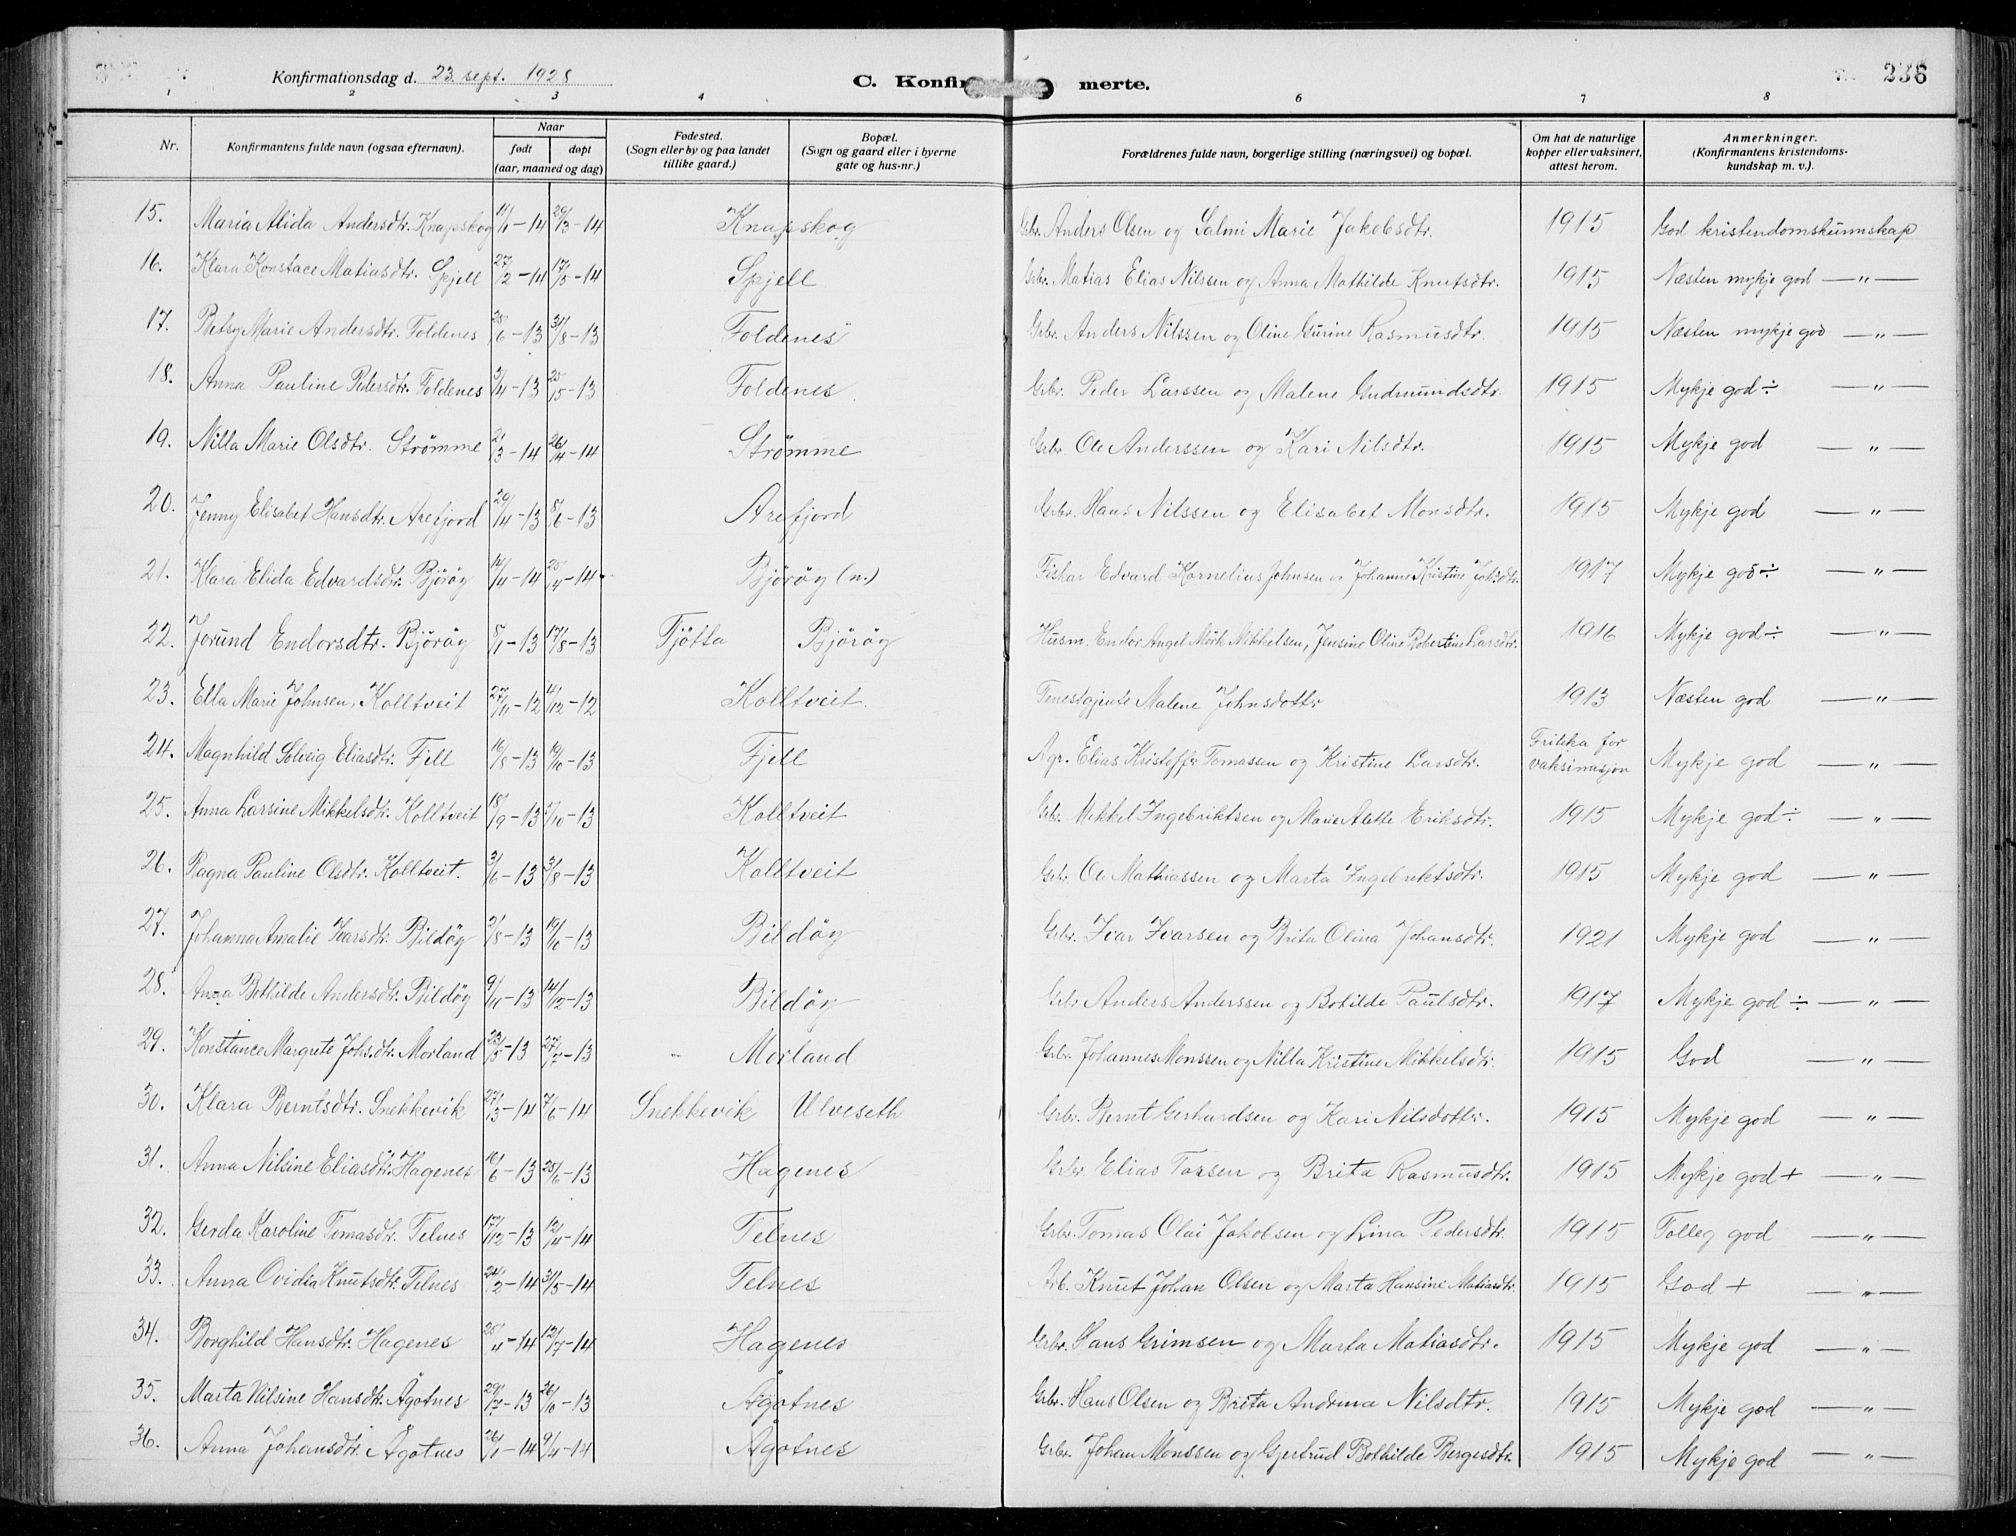 Konfirmationsdag d. 23. sept. 1928
C. Konfir merte.
236
1 2 3 4 6 7 8
Nr. Konfirmantens fulde navn (ogsaa efternavn). Naar født døpt (aar, maaned og dag) Fødested. (Sogn eller by og paa landet tillike gaard.) Bopæl. (Sogn og gaard eller i byerne gate og hus-nr.) Forældrenes fulde navn, borgerlige stilling (næringsvei) og bopæl. Om hat de naturlige kopper eller vaksinert, attest herom. Anmerkninger. (Konfirmantens kristendoms-kundskap m. v.).
15. Maria Alida Andersdtr. Knapskog 11/1-14 29/3-14 Knapskog Grbr. Anders Olsen og Salmi Marie Jakobsdtr. 1915 God kristendomskunnskap
16. Klara Konstace Matiasdtr. Spjell 27/2-14 17/5-14 Spjell Grbr. Matias Elias Nilssen og Anna Mathilde Knutsdtr. 1915 Næsten mykje god — " —
17. Betsy Marie Andersdtr. Foldenes 25/6-13 31/8-13 Foldenes Grbr. Anders Nilssen og Oline Gurine Rasmusdtr. 1915 Næsten mykje god — " —
18. Anna Pauline Pedersdtr. Foldenes 3/4-13 25/5-13 Foldenes Grbr. Peder Larssen og Malene Gudmundsdtr. 1915 Mykje god ÷ — " —
19. Nilla Marie Olsdtr. Strømme 21/3-14 26/4-14 Strømme Grbr. Ole Anderssen og Kari Nilsdtr. 1915 Mykje god — " —
20. Jenny Elisabet Hansdtr. Arefjord 29/4-13 8/6-13 Arefjord Grbr. Hans Nilssen og Elisabet Monsdtr. 1915 Mykje god — " —
21. Klara Elida Edvardsdtr. Bjørøy 14 25 -14 Bjørøy (n.) Fiskar Edvard Kornelius Johnsen og Johanne Kristine Johsdtr. 1917 Mykje god ÷ — " —
22. Jorund Endorsdtr. Bjørøy 8/1-13 17/8-13 Tjøtta Bjørøy Husm. Endor Angel Mørk Mikkelsen, Jensine Oline Robertine Larsdtr. 1916 Mykje god ÷ — " —
23. Ella Marie Johnsen, Kolltveit 27/11-12 /12-12 Kolltveit. Tenestgjente Malene Johnsdotter 1913 Næsten god — " —
24. Magnhild Solveig Eliasdtr. Fjell 16/8-13 19/10-13 Fjell Agr. Elias Kristoffer Tomassen og Kristine Larsdtr. Friteka for vaksinasjon Mykje god — " —
25. Anna Larsine Mikkelsdtr. Kolltveit 18/9-13 /10-13 Kolltveit Grbr. Mikkel Ingebriktsen og Marie Alette Eriksdtr. 1915 Mykje god ÷ — " —
26. Ragna Pauline Olsdtr. Kolltveit. 3/6-13 3/8-13 Kolltveit Grbr. Ole Mathiassen og Marta Ingebriktsdtr. 1915 Mykje god — " —
27. Johanna Amalie Ivarsdtr. Bildøy /8-13 19/10-13 Bildøy Grbr. Ivar Ivarsen og Brita Olina Johansdtr. 1921 Mykje god — " —
28. Anna Bothilde Andersdtr. Bildøy 9/11-13 14/12-13 Bildøy Grbr Anders Anderssen og Botilde Paulsdtr. 1917 Mykje god ÷ — " —
29. Konstance Margrete Johsdtr. Morland 23/5-13 27/7-13 " Morland Grbr. Johannes Monssen og Nilla Kristine Mikkelsdtr. 1915 God — " —
30. Klara Berntsdtr. Snekkevik 27/3-14 7/6-14 Snekkevik Ulveseth Grbr. Bernt Gerhardsen og Kari Nilsdotter. 1915 Mykje god — " —
31. Anna Nilsine Eliasdtr. Hagenes 16/6-13 25/6-13 Hagenes Grbr. Elias Torsen og Brita Rasmusdtr. 1915 Mykje god + — " —
32. Gerda Karoline Tomasdtr. Telnes 17/12-13 12/4-14 Telnes Grbr. Tomas Olai Jakobsen og Lina Pedersdtr. 1915 Tolleg god — " —
33. Anna Ovidia Knutsdtr. Telnes 24/2-14 31/5-14 Telnes Arb. Knut Johan Olsen og Marta Hansine Matiasdtr. 1915 God + — " —
34. Borghild Hansdtr. Hagenes 25/4-14 12/7-14 Hagenes Grbr. Hans Grimsen og Marta Matiasdtr. 1915 Mykje god — " —
35. Marta Nilsine Hansdtr. Ågotnes 29/7-13 26/10-13 Ågotnes Grbr. Hans Olsen og Brita Andrina Nilsdtr. 1915 Mykje god — " —
36. Anna Johansdtr. Ågotnes 26/1-14 9/4-14 Ågotnes Grbr. Johan Monssen og Gjertrud Bothilde Bergesdtr. 1915 Mykje god — " —